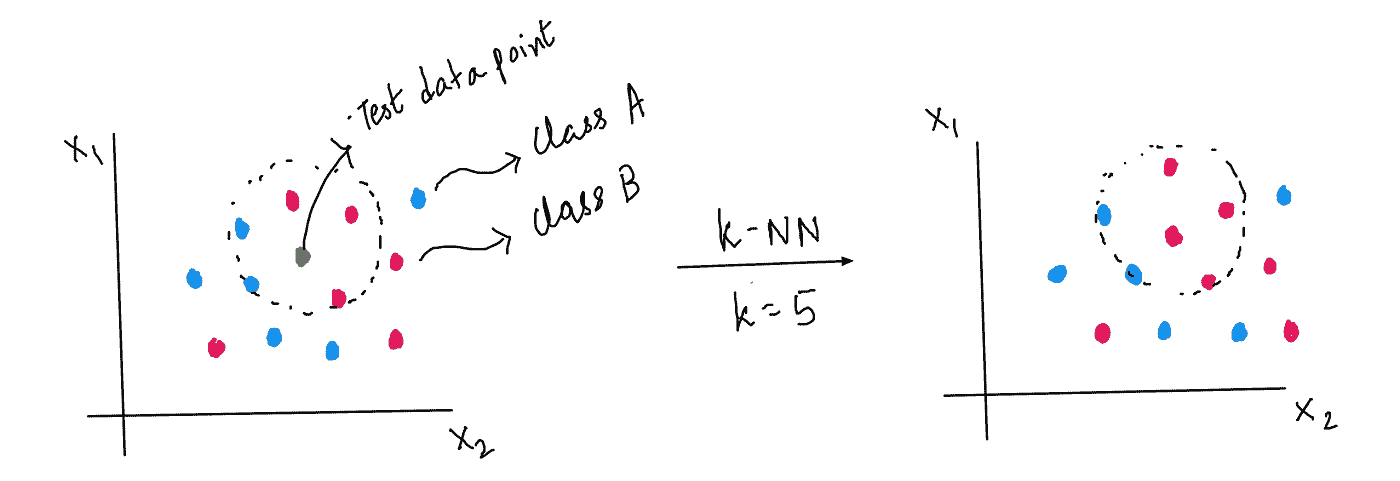 Test data point
class A
class B
X1
X2
k-NN
k=5
X1
X2